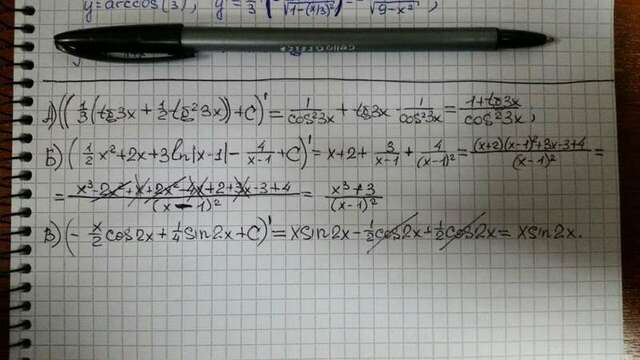 y=arccos(x/3), y'=1/3·(-1/√(1-(x/3)²))=-1/√(9-x²);
А) ((1/3(tg3x + 1/2 tg²3x))+C)' = 1/cos²3x + tg3x·1/cos²3x = (1+tg3x)/cos²3x;
Б) (1/2x²+2x+3ln|x-1|-4/(x-1)+C)' = x+2+3/(x-1)+4/(x-1)² = ((x+2)(x-1)²+3x-3+4)/(x-1)² =
= (x³-2x²+x+2x²-4x+2+3x-3+4)/(x-1)² = (x³+3)/(x-1)²
В) (-x/2 cos2x+1/4 sin2x+C)' = xsin2x-1/2cos2x+1/2cos2x = xsin2x.